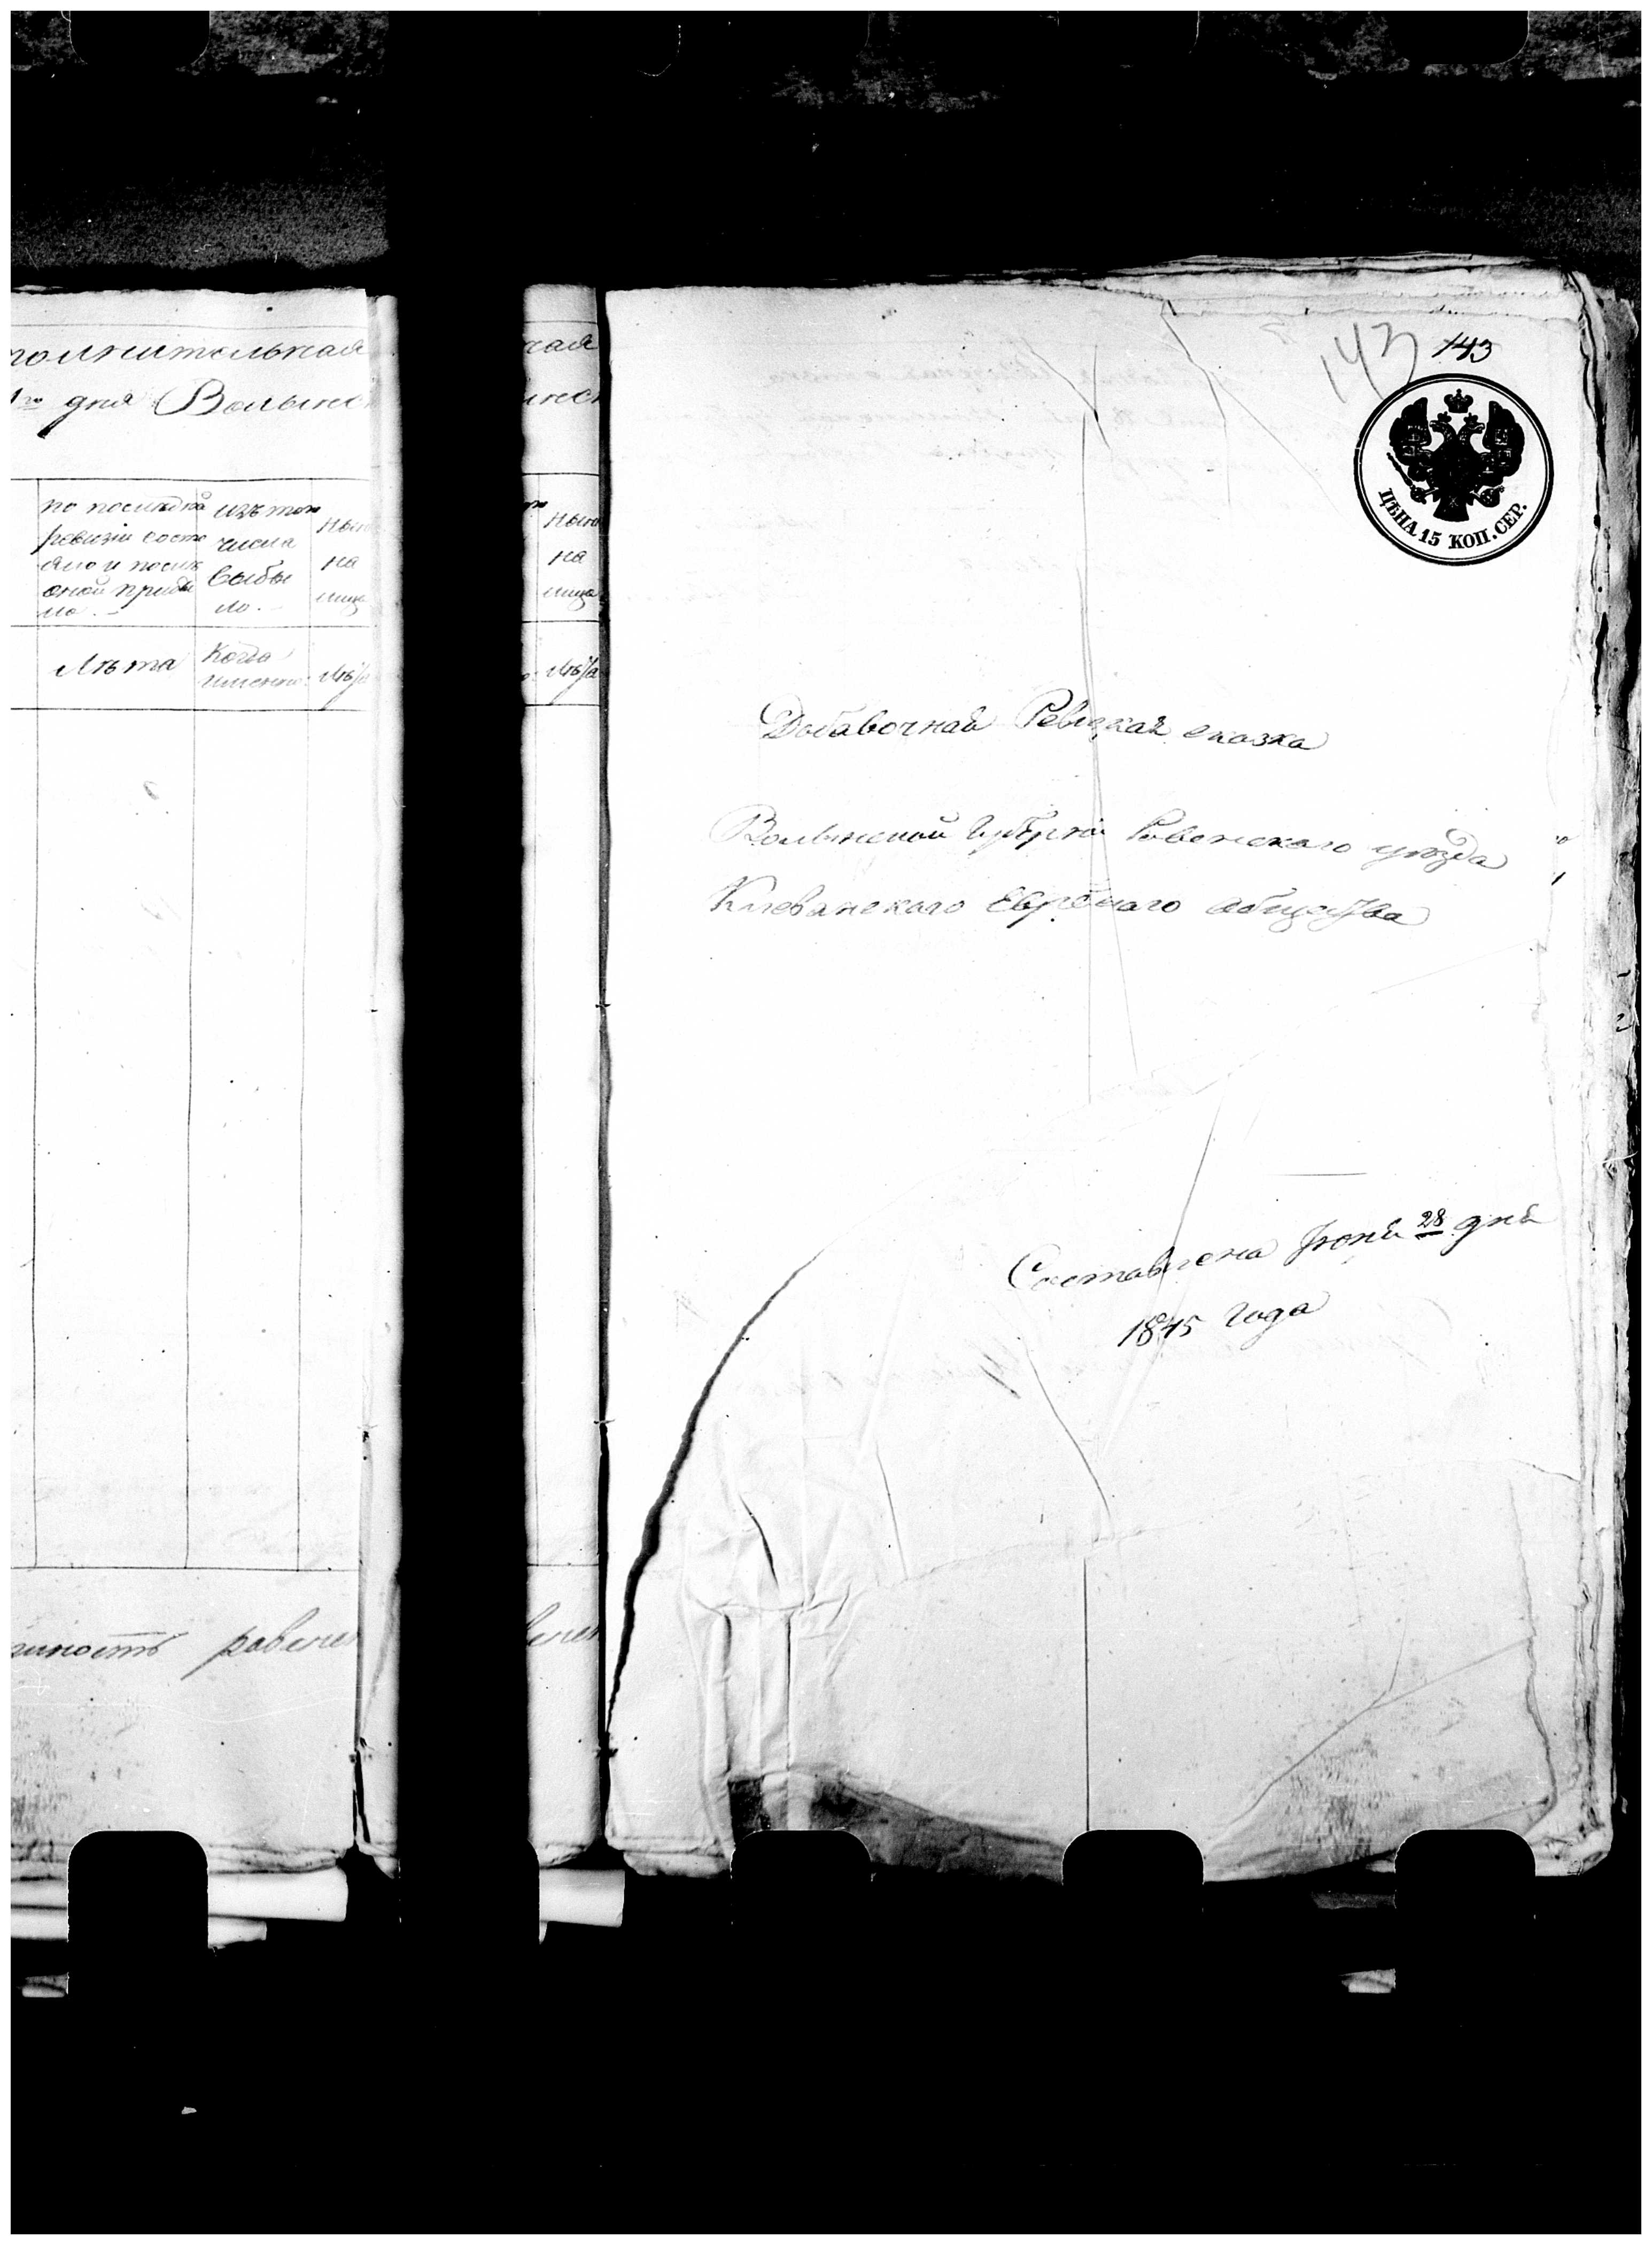 полнительная
дня Волынс
по последней
ревизіи состо
яло и после
оной прибы
ло. –
изъ того
числа
выбы
ло. –
на
лице
Лѣта
Когда
именно:
Лѣта
ность ровенс
ная
на
лице
Лѣта
143 143
ЦѢНА 15 КОП. СЕР.
Добавочная Ревизская сказка
Волынской Губерніи Ровенского уѣзда
Клеванского Еврейского общества
Составлена Іюня 28 дня
1845 года